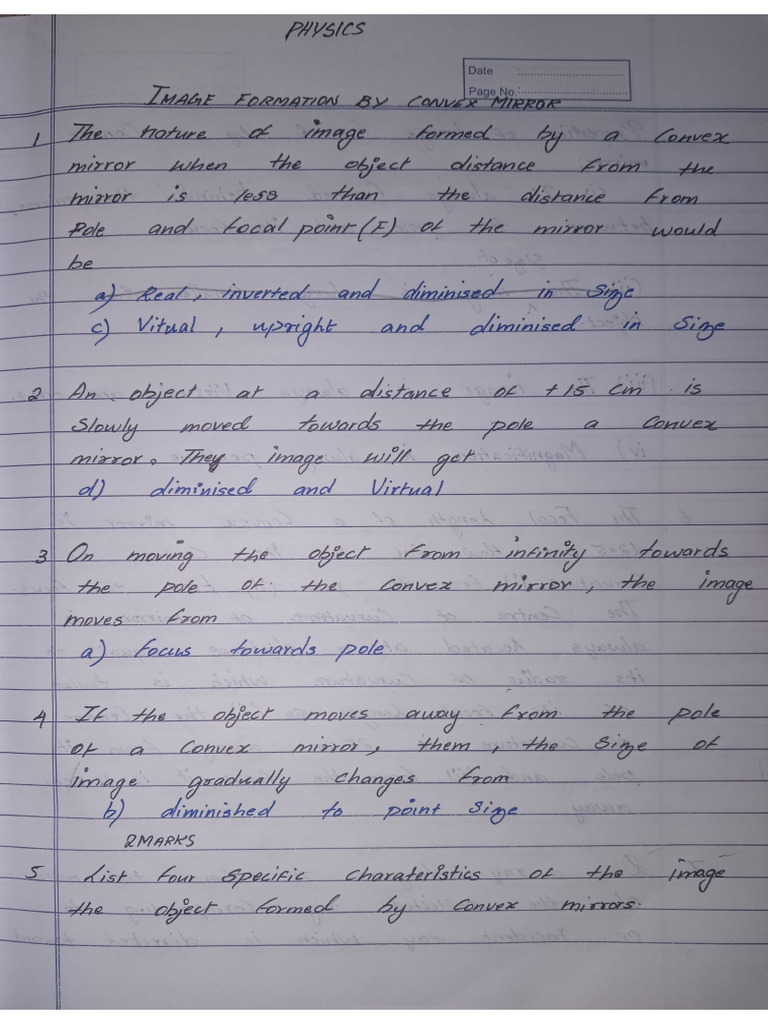 PHYSICS
Date :
Page No.:
IMAGE FORMATION BY CONVEX MIRROR
1 The nature of image formed by a convex
mirror when the object distance from the
mirror is less than the distance from
Pole and focal point (F) of the mirror would
be
a) Real, inverted and diminised in size
c) Vitual, upright and diminised in size
2 An object at a distance of +15 cm is
slowly moved towards the pole a convex
mirror. They image will get
d) diminised and Virtual
3 On moving the object from infinity towards
the pole of the convex mirror, the image
moves from
a) focus towards pole
4 If the object moves away from the pole
of a convex mirror, them, the size of
image gradually changes from
b) diminished to point size
2MARKS
5 List four specific charateristics of the image
the object formed by convex mirrors.